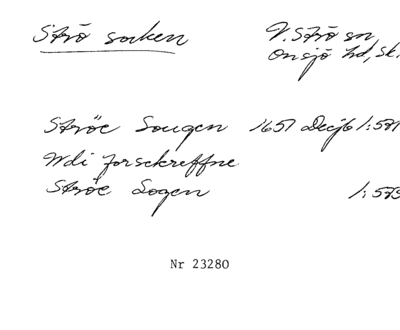 Strö socken
V. Strö sn
Onsjö hd, Sk.
Ströe Sougen 1657 Decjb 1:571
Wdi forsckreffne
Ströe Sogen 1:573
Nr 23280